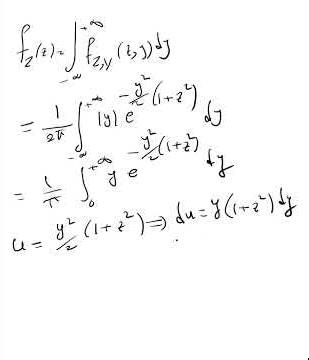 f_Z(z) = ∫_{-∞}^{+∞} f_{Z,Y}(z,y)dy
= 1/2π ∫_{-∞}^{+∞} |y| e^{-y²/2(1+z²)} dy
= 1/π ∫_0^{+∞} y e^{-y²/2(1+z²)} dy
u = y²/2 (1+z²) ⇒ du = y(1+z²)dy